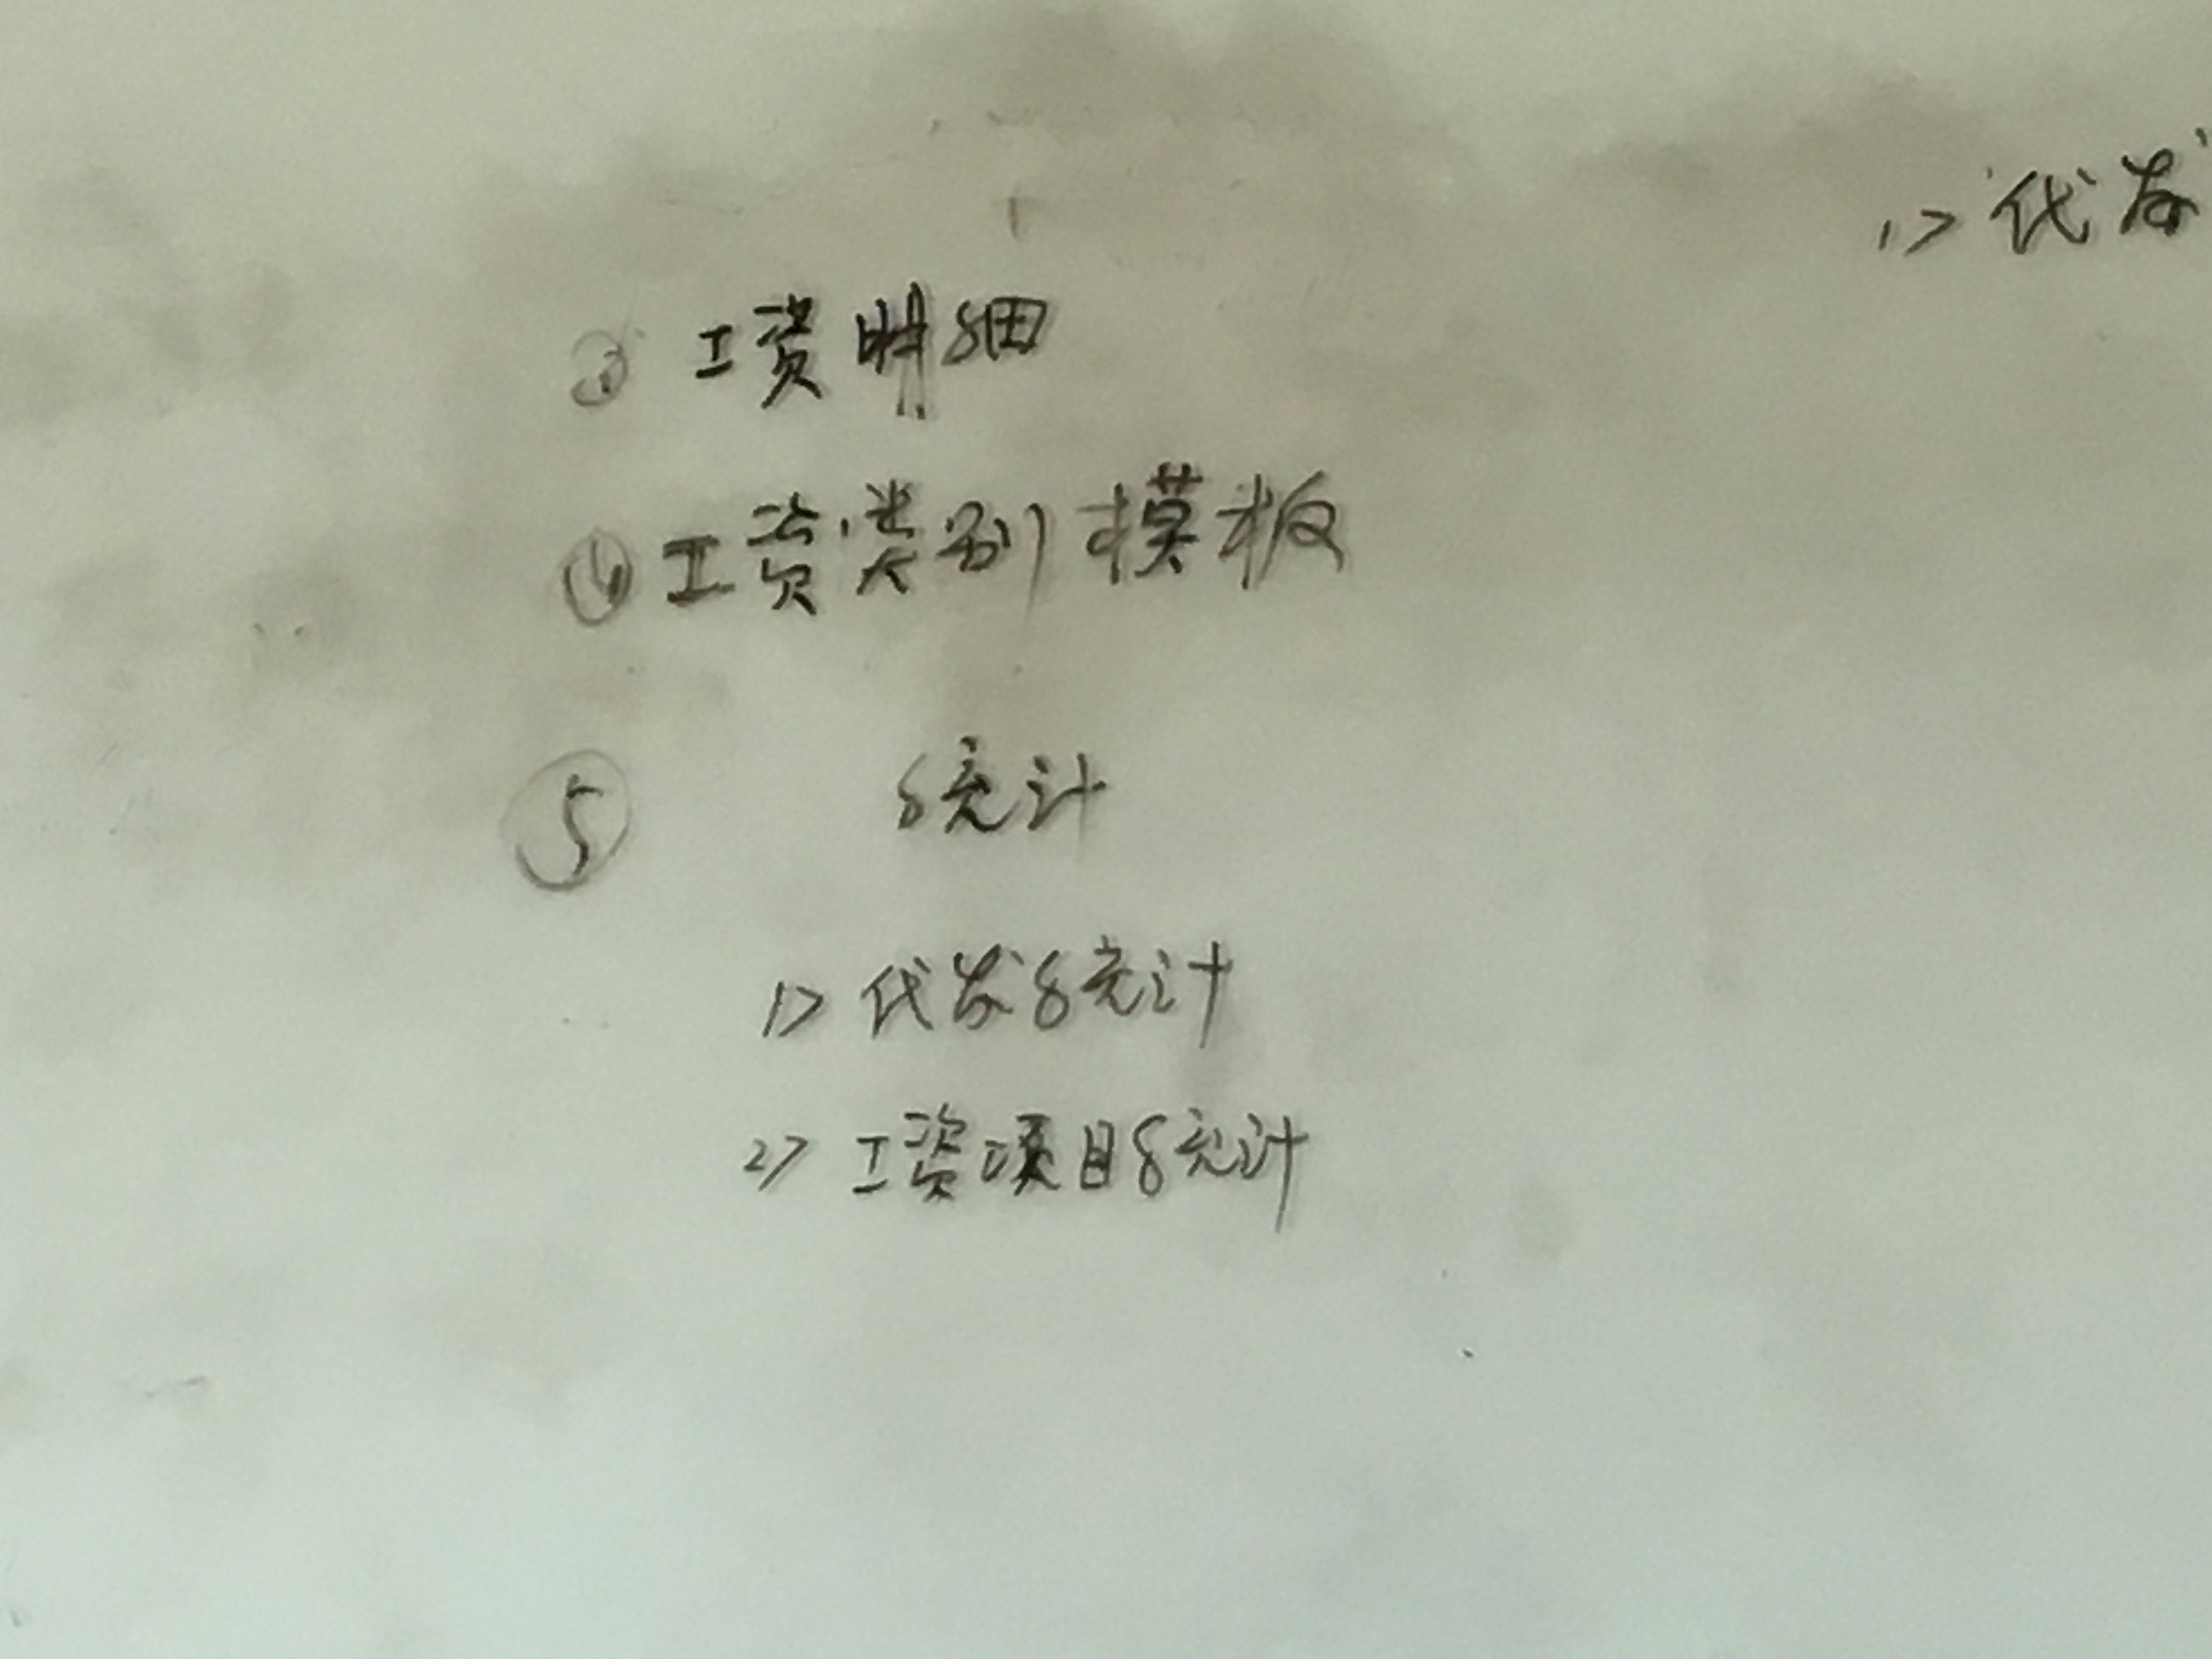 1> 代发
③ 工资明细
④ 工资类别模板
⑤ 统计
1> 代发统计
2> 工资项目统计